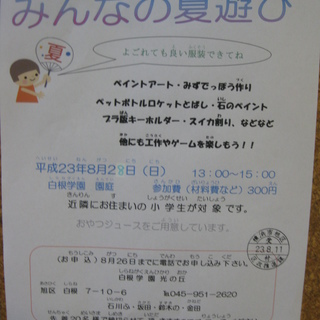 みんなの夏遊び
夏
よごれても良い服装できてね
ペイントアート・みずでっぽう作り
ペットボトルロケットとばし・石のペイント
プラ版キーホルダー・スイカ割り、などなど
他にも工作やゲームを楽しもう!!
平成23年8月28日(日) 13:00~15:00
白根学園 園庭 参加費(材料費など)300円
近隣にお住まいの小学生が対象です。
おやつジュースをご用意しています。
(お申込)8月26日までに電話でお申し込み下さい。
白根学園光の丘
旭区 白根 7-10-6 ℡045-951-2620
石川み・坂田・鈴木の・金田
23.8.11